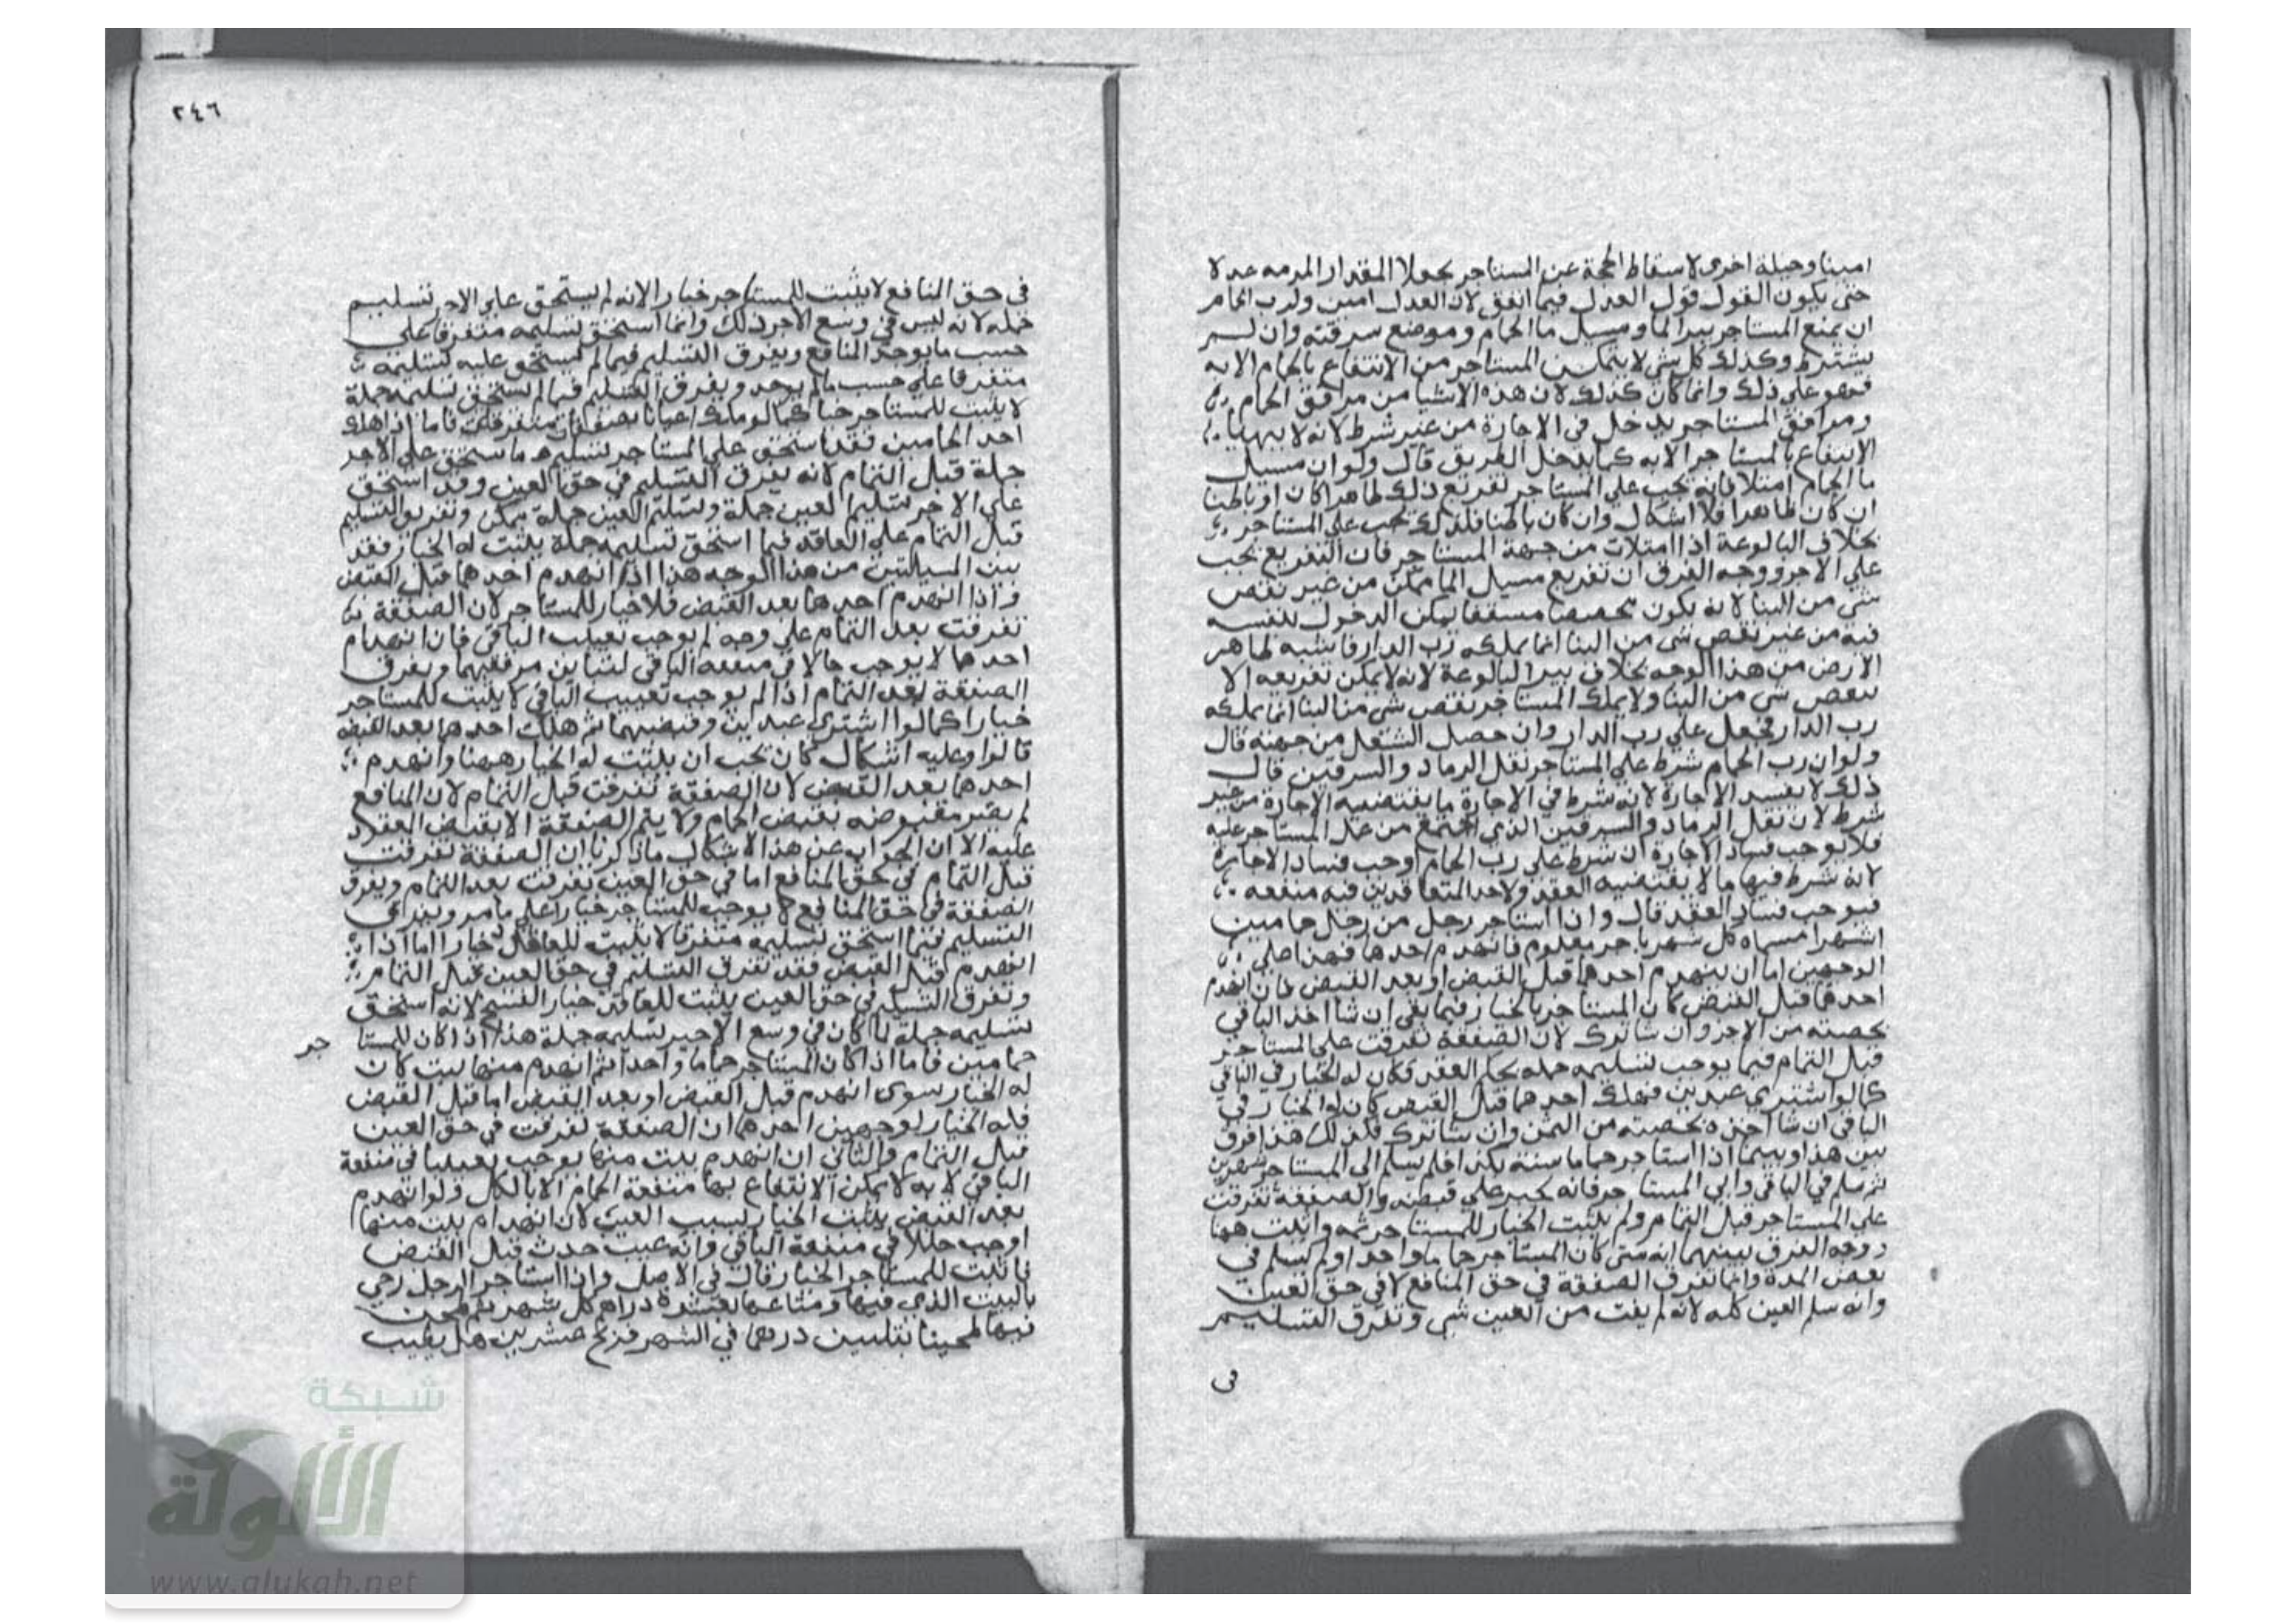 امينا وحيلة اخرى لاسقاط الحجة عن المستاجر يجعلا المقدار المرمه عدلا
حتى يكون القول قول العدل فيما انفق لان العدل امين ولرب الحمام
ان يمنع المستاجر بير الما ومسيل ما الحمام وموضع سرقنه وان لم
يشترط وكذلك كل شي لا يتمكن المستاجر من الانتفاع بالحمام الا به
فهو على ذلك وانما كان كذلك لان هذه الاشيا من مرافق الحمام
ومرافق المستاجر يدخل في الاجارة من غير شرط لانه لا يتهيا
الانتفاع بالمستاجر الا به كما يدخل الطريق قال ولو ان مسيل
ما الحمام امتلا فانه يجب على المستاجر تفريغ ذلك ظاهرا كان او باطنا
ان كان ظاهرا فلا اشكال وان كان باطنا فلذلك يجب على المستاجر
بخلاف البالوعة اذا امتلات من جهة المستاجر فان التفريغ يجب
على الاجر ووجه الفرق ان تفريغ مسيل الما ممكن من غير نقص
شي من البنا لانه يكون مسقفا يمكن الدخول بنفسه
فيه من غير نقص شي من البنا انما يملكه رب الدار فاشبه ظاهر
الارض من هذا الوجه بخلاف بير البالوعة لانه لا يمكن تفريغه الا
بنقص شي من البنا ولا يملك المستاجر نقص شي من البنا انما يملكه
رب الدار فجعل على رب الدار وان حصل الشغل من جهته قال
ولو ان رب الحمام شرط على المستاجر نقل الرماد والسرقين قال
ذلك لا يفسد الاجارة لانه شرط في الاجارة ما يقتضيه الاجارة من غير
شرط لان نقل الرماد والسرقين الذي اجتمع من عمل المستاجر عليه
فلا يوجب فساد الاجارة ان شرط على رب الحمام اوجب فساد الاجارة
لانه شرط فيها ما لا يقتضيه العقد ولاحد المتعاقدين فيه منفعه
فيوجب فساد العقد قال واذا استاجر رجل من رجل حمامين
اشهرا مسماه كل شهر باجر معلوم فانهدم احدهما فهذا على
الوجهين اما ان ينهدم احدهما قبل القبض او بعد القبض فان انهدم
احدهما قبل القبض كان المستاجر بالخيار فيما بقى ان شا اخذ الباقي
بحصته من الاجر وان شا ترك لان الصفقة تفرقت على المستاجر
قبل التمام فيما يوجب تسليمه جمله بحكم العقد فكان له الخيار في الباقي
كما لو اشترى عبدين فهلك احدهما قبل القبض كان له الخيار في
الباقي ان شا اخذه بحصته من الثمن وان شا ترك فكذلك هذا فرق
بين هذا وبينما اذا استاجر حماما سنة بكذا فلم يسلم الى المستاجر شهرين
ثم سلم في الباقي وابى المستاجر فانه يجبر على قبضه والصفقة تفرقت
على المستاجر قبل التمام ولم يثبت الخيار للمستاجر ثمه واثبت ههنا
ووجه الفرق بينهما انه متى كان المستاجر حماما واحدا ولم يسلم في
بعض المدة وانما تفرق الصفقة في حق المنافع لا في حق العين
وانه سلم العين كله لانه لم يفت من العين شي وتفرق التسليم
في
٢٤٦
في حق المنافع لا يثبت للمستاجر خيارا لانه لم يستحق على الاجر تسليم
جمله لانه ليس في وسع الاجر ذلك وانما استحق تسليمه متفرقا على
حسب ما يوجد المنافع ويفرق التسليم فيما لم يستحق عليه تسليمه
متفرقا على حسب مالم يوجد ويفرق التسليم فيما لم يستحق تسليمه جملة
لا يثبت للمستاجر خيارا كما لو ملك اعيانا بصفقات متفرقات فاما اذا هلك
احد الحمامين فقد استحق على المستاجر تسليم ما استحق على الاجر
جملة قبل التمام لانه يفرق التسليم في حق العين وقد استحق
على الاجر تسليم العين جملة وتسليم العين جملة ممكن وتفريق التسليم
قبل التمام على العاقد فيما استحق تسليمه جملة يثبت له الخيار فقد
بين المسيلتين من هذا الوجه هذا اذا انهدم احدهما قبل القبض
واذا انهدم احدهما بعد القبض فلا خيار للمستاجر لان الصفقة
تفرقت بعد التمام على وجه لم يوجب تعييب الباقي فان انهدام
احدهما لا يوجب خللا في منفعه الباقي لتباين مرفقيهما ويفرق
الصفقة بعد التمام اذا لم يوجب تعييب الباقي لا يثبت للمستاجر
خيارا كما لو اشترى عبدين وقبضهما ثم هلك احدهما بعد القبض
قالوا وعليه اشكال كان يجب ان يثبت له الخيار ههنا وانهدم
احدهما بعد القبض لان الصفقة تفرقت قبل التمام لان المنافع
لم يصر مقبوضه بقبض الحمام ولا يتم الصفقة الا بقبض العقود
عليه الا ان الجواب عن هذا الاشكال ما ذكرنا ان الصفقة تفرقت
قبل التمام في حق المنافع اما في حق العين تفرقت بعد التمام ويفرق
الصفقة في حق المنافع لا يوجب للمستاجر خيارا على ما مر ويفرق
التسليم فيما استحق تسليمه متفرقا لا يثبت للعاقد خيارا اما اذا
انهدم قبل القبض فقد تفرق التسليم في حق العين قبل التمام
وتفرق التسليم في حق العين يثبت للعاقد خيار الفسخ لانه استحق
تسليمه جملة لما كان في وسع الاجير تسليمه جملة هذا اذا كان للمستا جر
حمامين فاما اذا كان المستاجر حماما واحدا ثم انهدم منها بيت كان
له الخيار سوى انهدم قبل القبض او بعد القبض اما قبل القبض
فله الخيار لوجهين احدهما ان الصفقة تفرقت في حق العين
قبل التمام والثاني ان انهدم بيت منها يوجب تعييبا في منفعة
الباقي لانه لا يمكن الانتفاع بها منفعة الحمام الا بالكل ولو انهدم
بعد القبض يثبت الخيار بسبب العيب لان انهدام بيت منهما
اوجب خللا في منفعة الباقي وانه عيب حدث قبل القبض
فاثبت للمستاجر الخيار قال في الاصل واذا استاجر الرجل رحي
بالبيت الذي فيها ومتاعها بعشرة دراهم كل شهر ثم طحن
فيها طحينا بثلثين درهما في الشهر فربح عشرين هل يطيب
شبكة
الألوكة
www.alukah.net